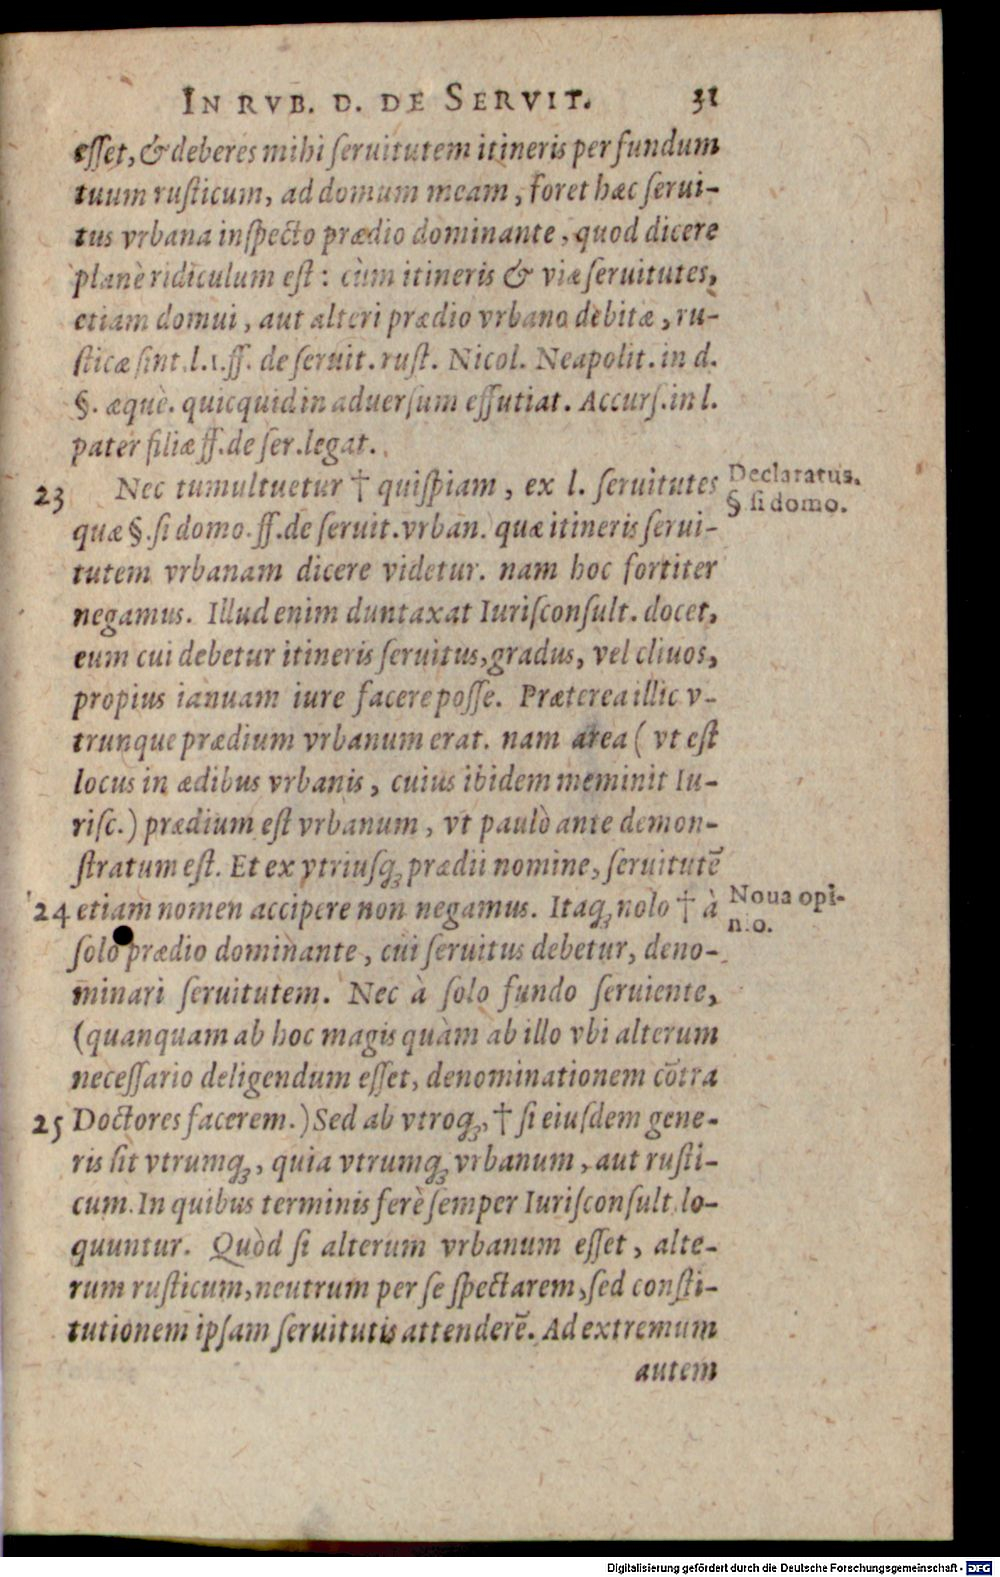 IN RVB. D. DE SERVIT. 31
eſſet, & deberes mihi ſeruitutem itineris per fundum
tuum ruſticum, ad domum meam, foret hæc ſerui-
tus vrbana inſpecto prædio dominante, quod dicere
planè ridiculum eſt: cùm itineris & viæ ſeruitutes,
etiam domui, aut alteri prædio vrbano debitæ, ru-
ſticæ ſint. l. 1. ff. de ſeruit. ruſt. Nicol. Neapolit. in d.
§. æquè. quicquid in aduerſum effutiat. Accurſ. in l.
pater filiæ ff. de ſer. legat.
23 Nec tumultuetur † quiſpiam, ex l. ſeruitutes
Declaratus.
§ ſi domo.
quæ §. ſi domo. ff. de ſeruit. vrban. quæ itineris ſerui-
tutem vrbanam dicere videtur. nam hoc fortiter
negamus. Illud enim duntaxat Iuriſconſult. docet,
eum cui debetur itineris ſeruitus, gradus, vel cliuos,
propius ianuam iure facere poſſe. Præterea illic v-
trunque prædium vrbanum erat. nam area ( vt eſt
locus in ædibus vrbanis, cuius ibidem meminit Iu-
riſc.) prædium eſt vrbanum, vt paulò ante demon-
ſtratum eſt. Et ex vtriuſq; prædii nomine, ſeruitutē
24 etiam nomen accipere non negamus. Itaq; nolo † à
Noua opi-
nio.
ſolo prædio dominante, cui ſeruitus debetur, deno-
minari ſeruitutem. Nec à ſolo fundo ſeruiente,
(quanquam ab hoc magis quàm ab illo vbi alterum
neceſſario deligendum eſſet, denominationem cōtra
25 Doctores facerem.) Sed ab vtroq;, † ſi eiuſdem gene-
ris ſit vtrumq;, quia vtrumq; vrbanum, aut ruſti-
cum. In quibus terminis ferè ſemper Iuriſconſult. lo-
quuntur. Quòd ſi alterum vrbanum eſſet, alte-
rum ruſticum, neutrum per ſe ſpectarem, ſed conſti-
tutionem ipſam ſeruitutis attenderē. Ad extremum
autem
Digitalisierung gefördert durch die Deutsche Forschungsgemeinschaft - DFG